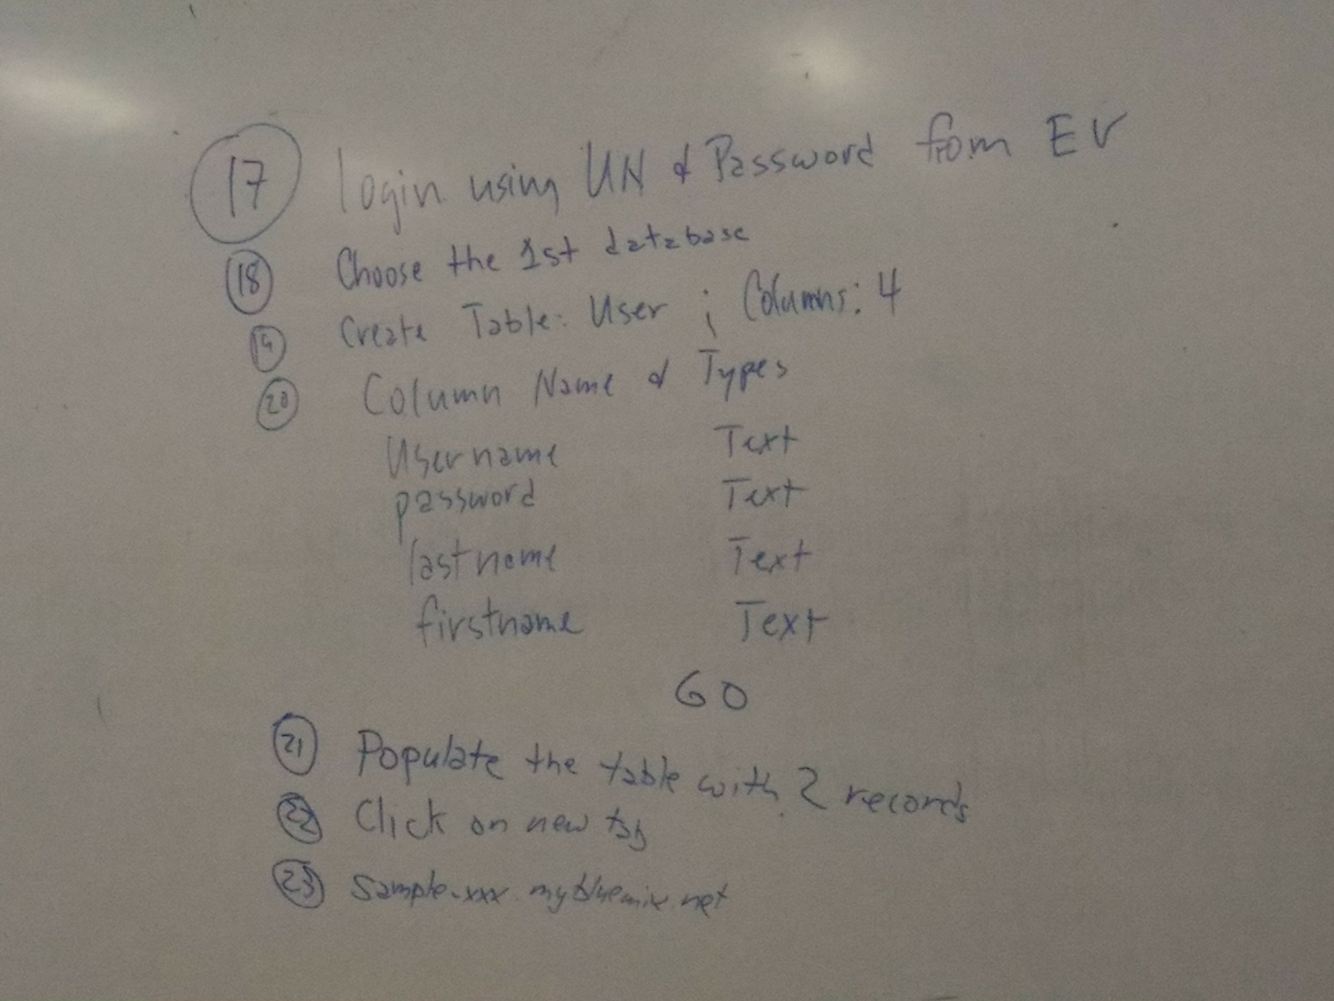 17 login using UN & Password from EV
18 Choose the 1st database
19 Create Table: User ; Columns: 4
20 Column Name & Types
Username Text
password Text
lastname Text
firstname Text
GO
21 Populate the table with 2 records
22 Click on new tab
23 sample-xxx.mybluemix.net